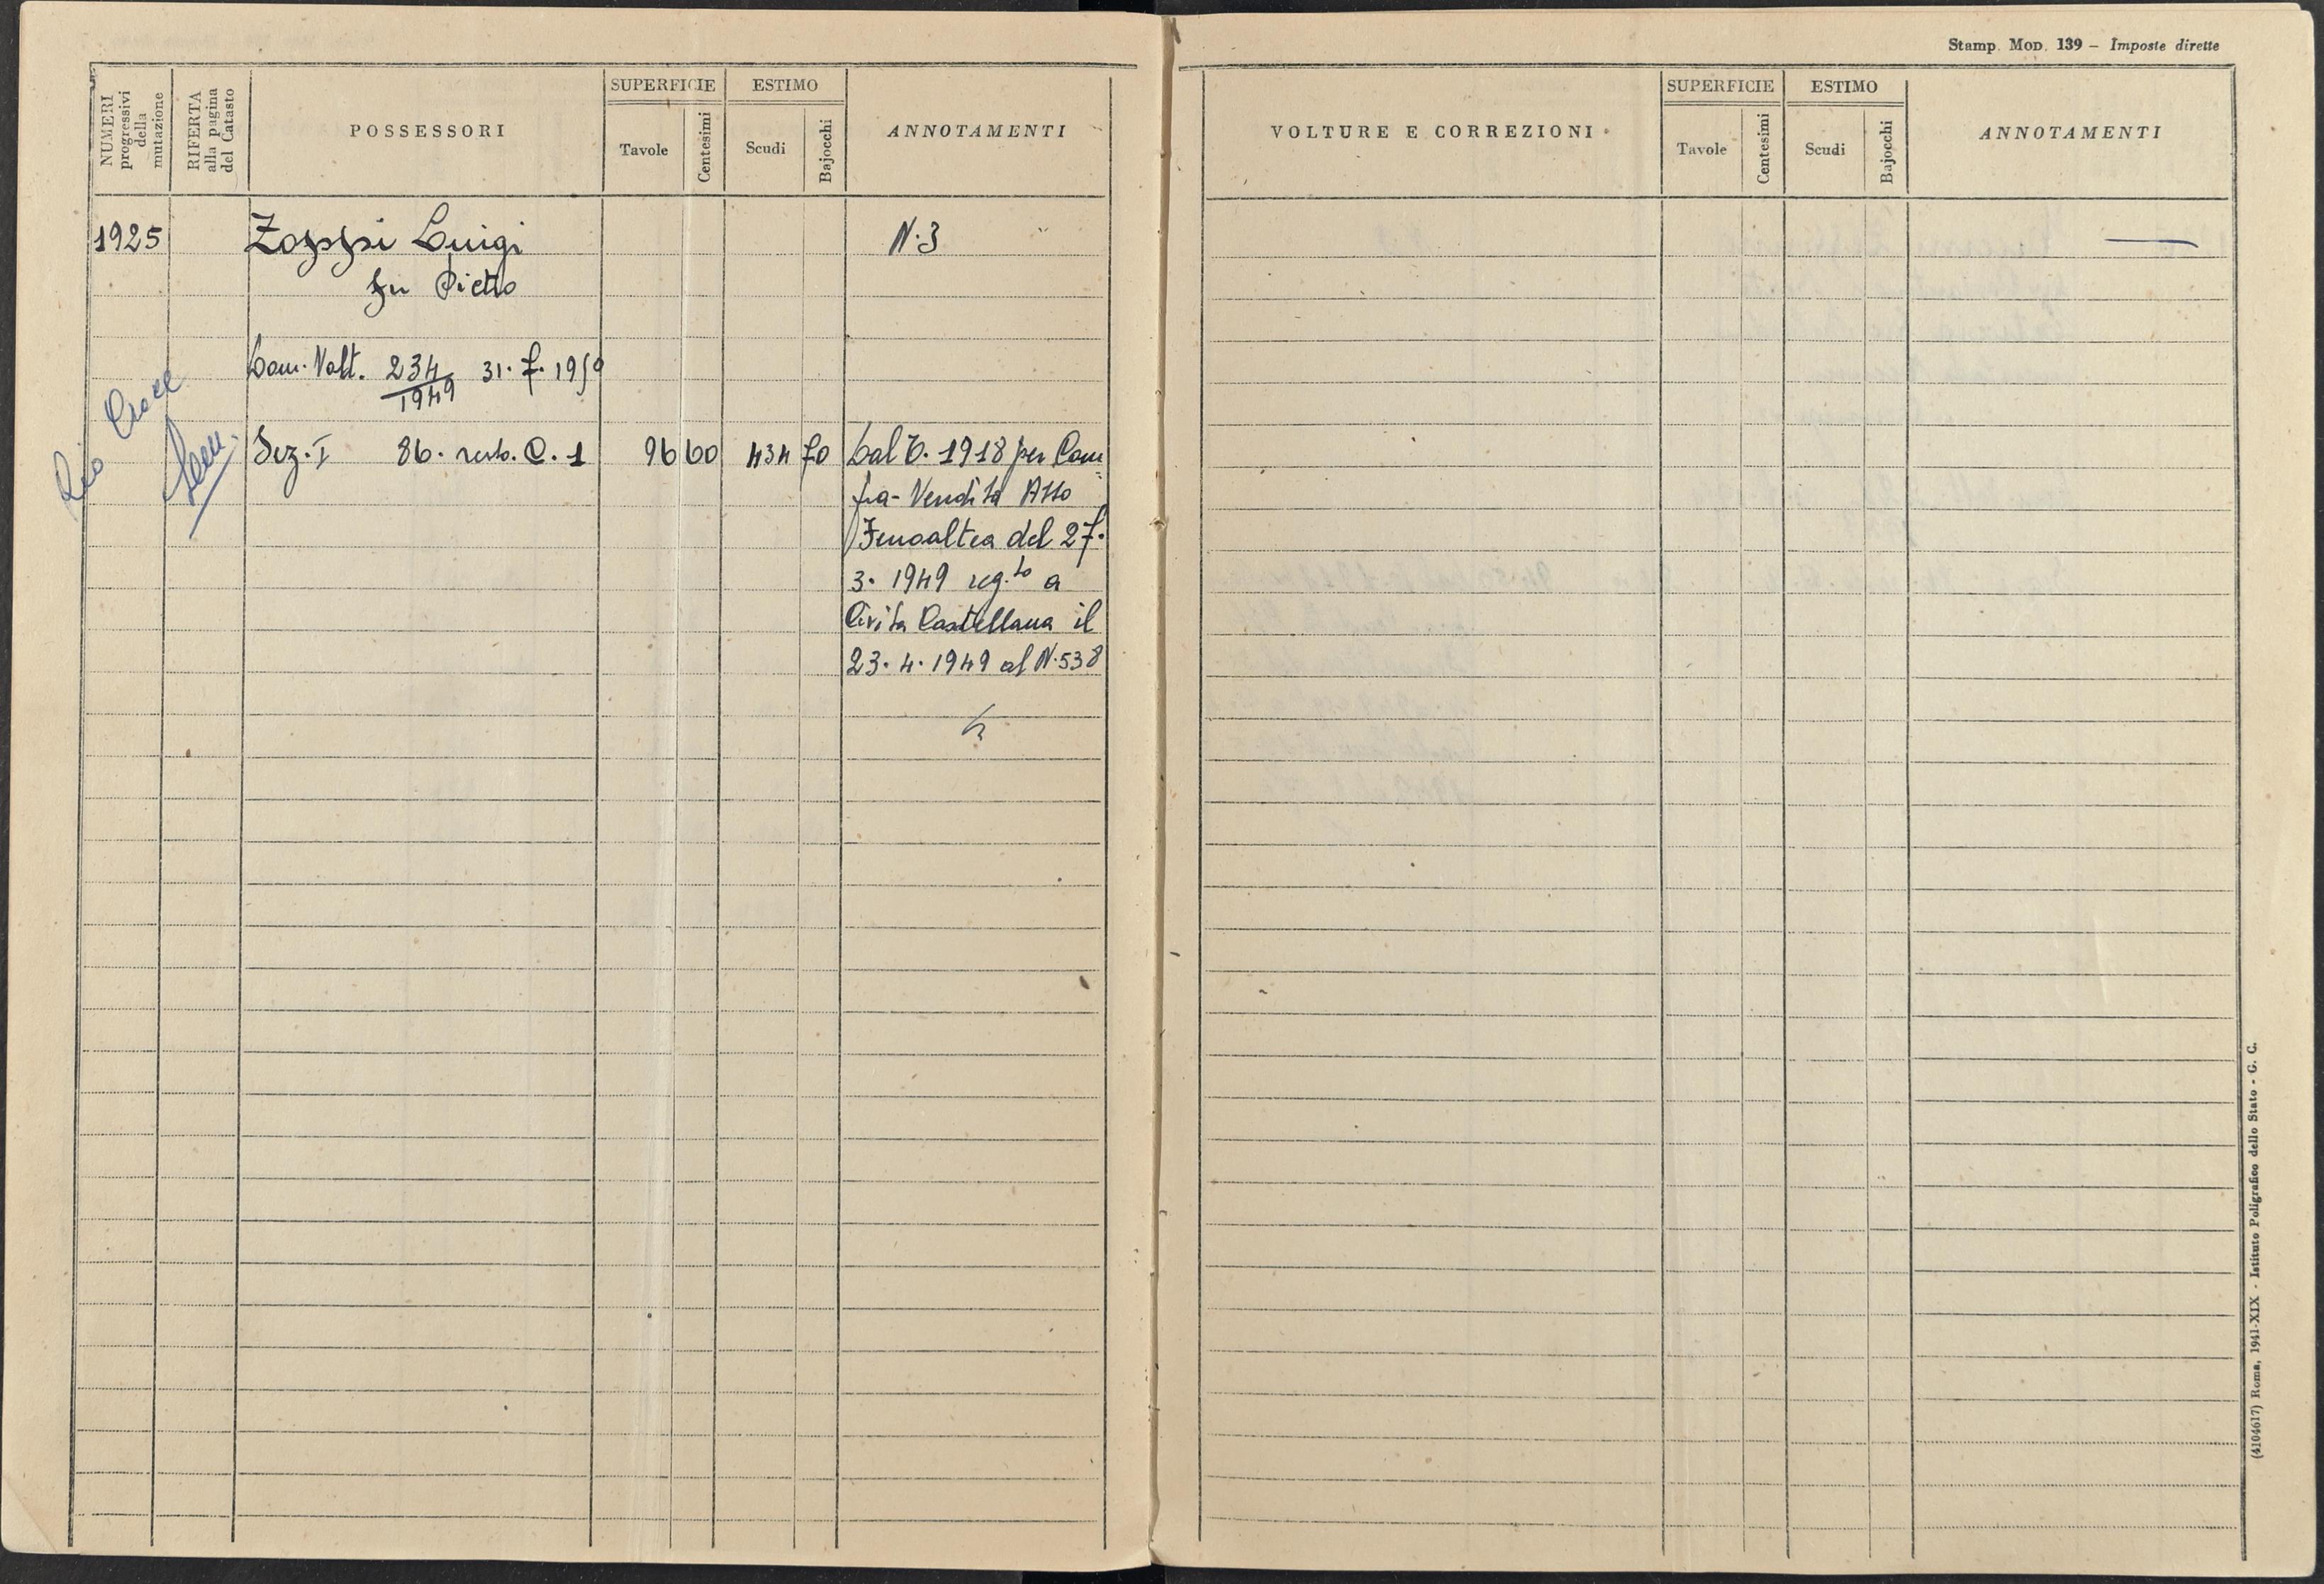 NUMERI progressivi della mutazione
RIFERTA alla pagina del Catasto
POSSESSORI
SUPERFICIE
Tavole
Centesimi
ESTIMO
Scudi
Bajocchi
ANNOTAMENTI
1925
Zoppi Luigi
N. 3
fu Pietro
Dom. Volt. 234/1949 31. 7. 1950
Rio
Sez. I 86. resto. C. 1 96 60 434 70 Dal C. 1918 per Com
pra-Vendita Atto
Fenoaltea del 27.
3. 1949 reg.to a
Civita Castellana il
23. 4. 1949 al N. 538
Stamp. Mod. 139 – Imposte dirette
VOLTURE E CORREZIONI
SUPERFICIE
Tavole
Centesimi
ESTIMO
Scudi
Bajocchi
ANNOTAMENTI
(4104617) Roma, 1941-XIX - Istituto Poligrafico dello Stato - G. C.